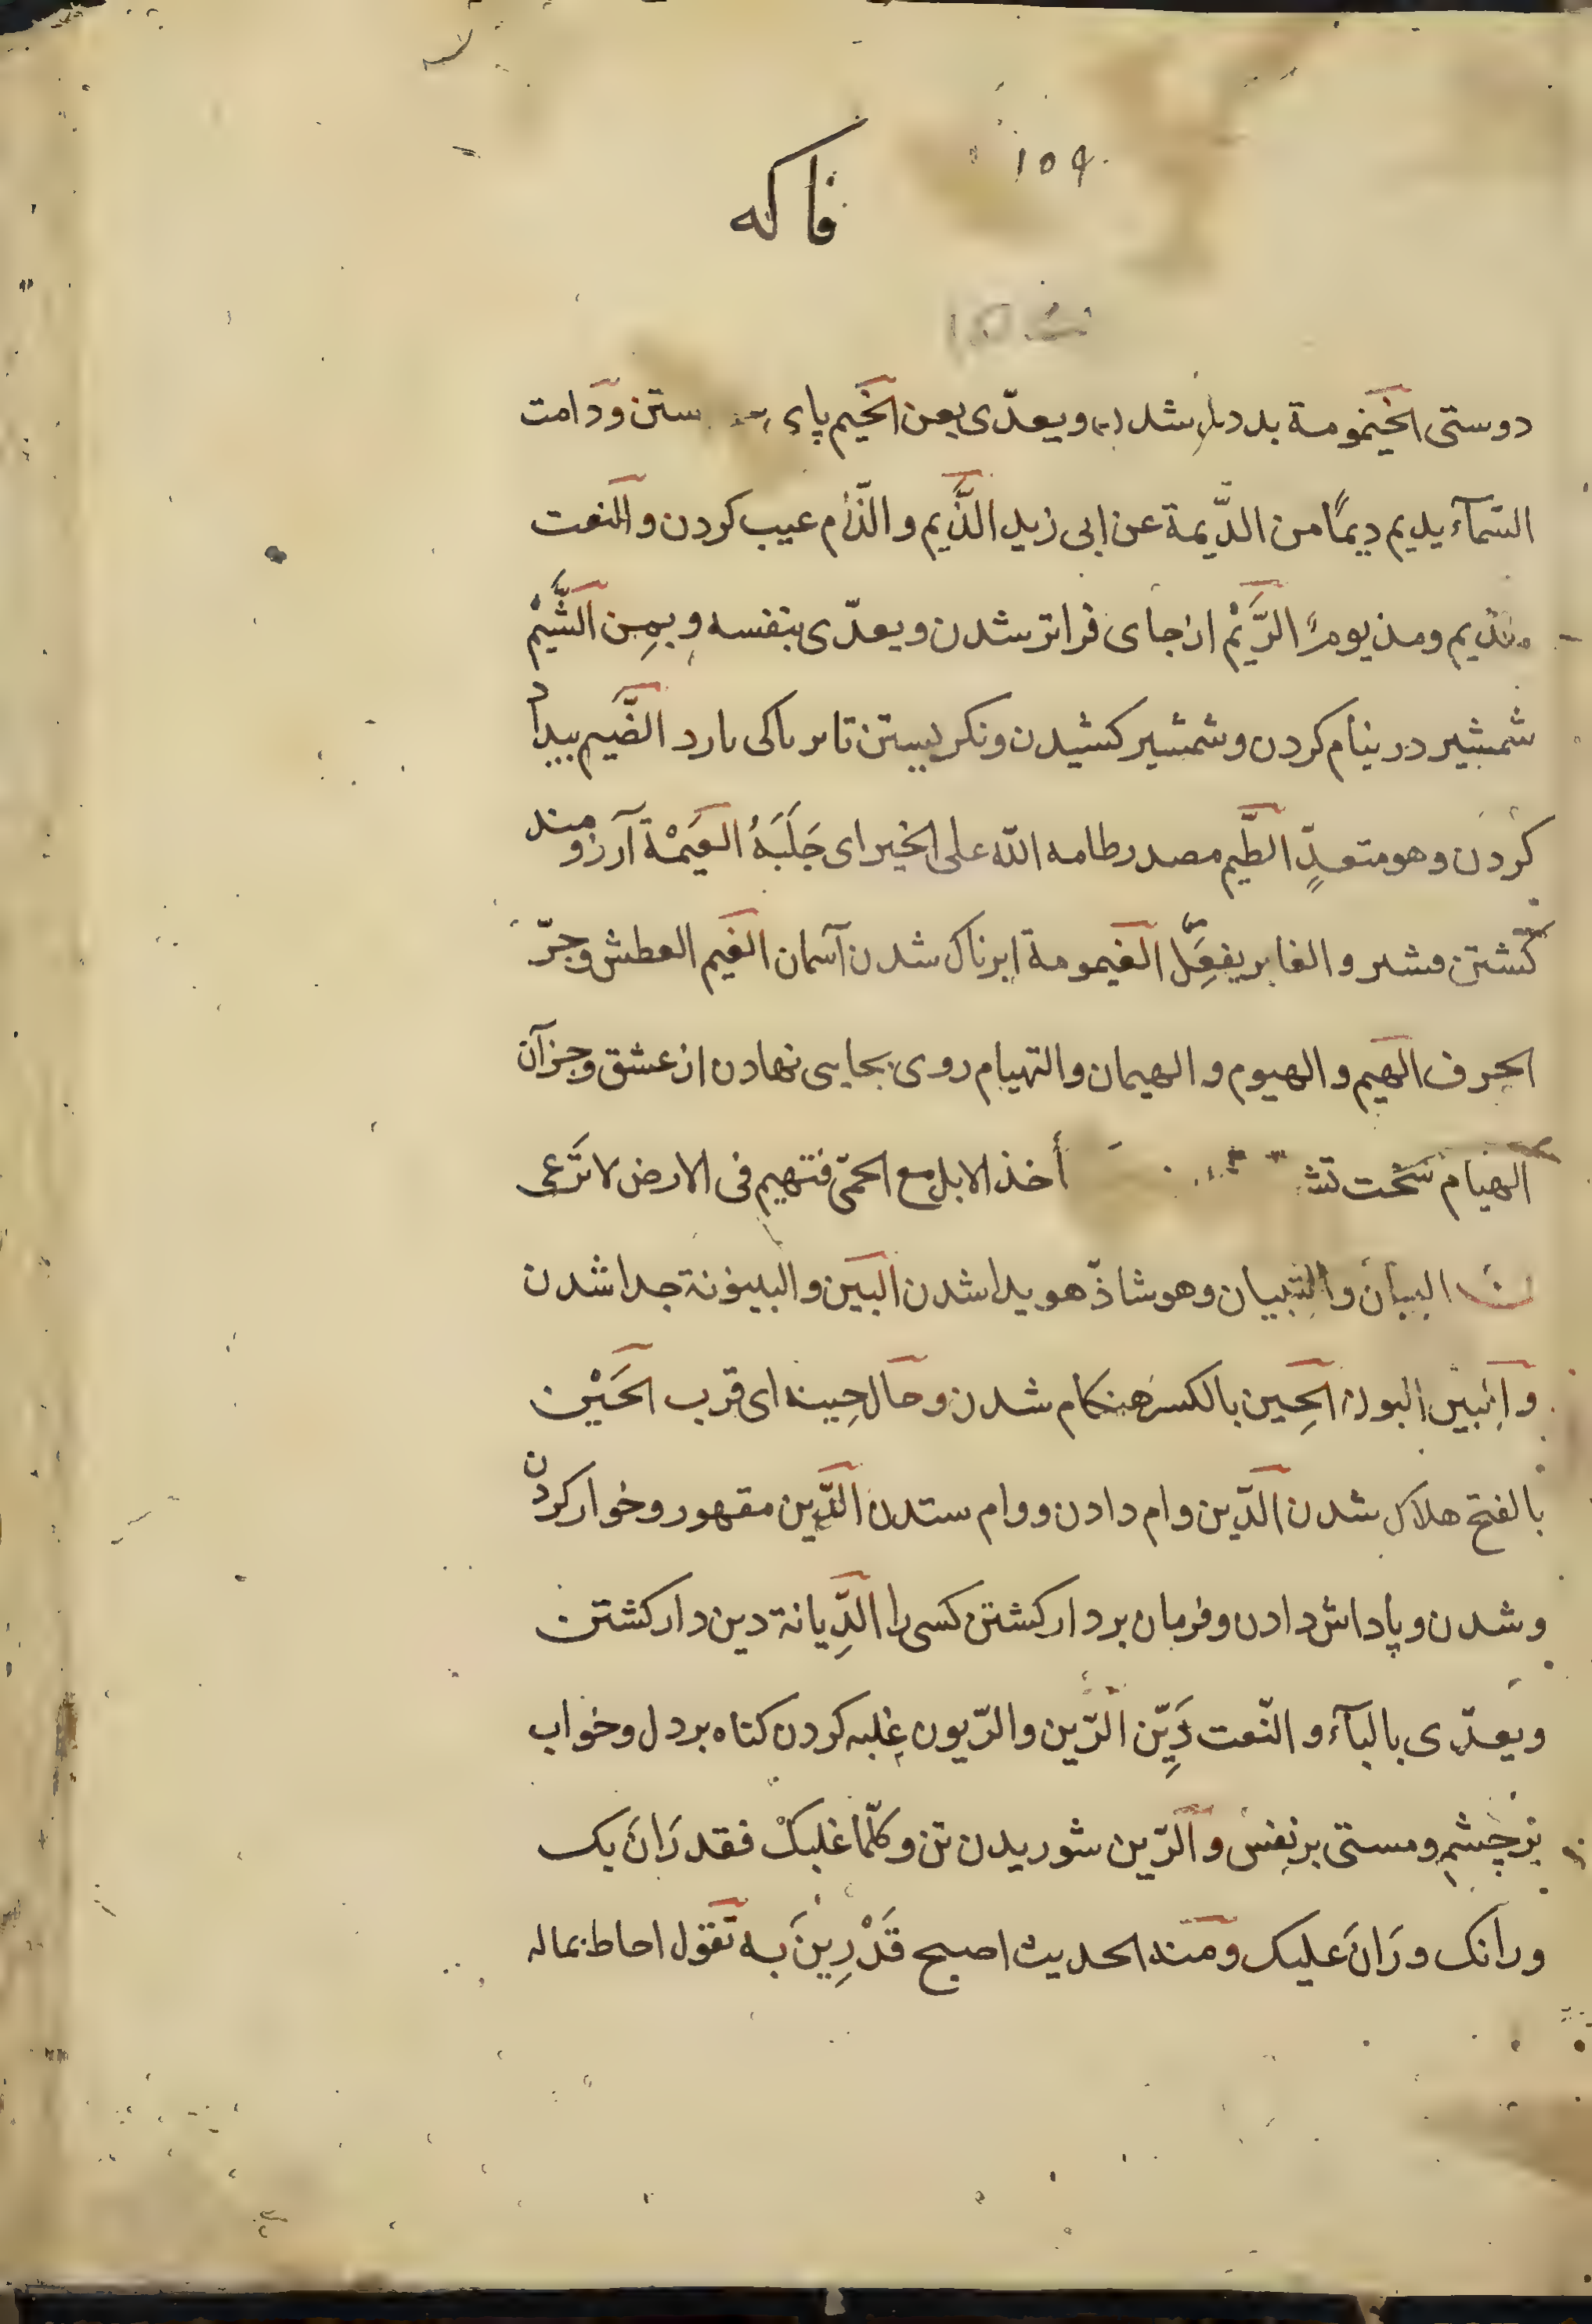 ۱۵۹
فاکه
دوستی الخیمومة بددل شدن ویعدّی بعن الخیم پای ستن ودامت
السّمآء یدیم دیمًا من الدّیمة عن ابی زید الذَّیم والذّأم عیب کردن والنعت
مذیم ومذیوم الرَّیْم از جای فراتر شدن ویعدّی بنفسه وبِمِن الشَّیْم
شمشیر در نیام کردن وشمشیر کشیدن ونکریستن تا بر باکی بارد الضّیم بیداد
کردن وهو متعدٍّ الطّیم مصدر طامه الله علی الخیر ای جَلَبَهُ العَیْمَة آرزومند
کشتن بشیر والغابر یفعِل الغیمومة ابرناک شدن آسمان الغیم العطش وجرّ
الحرف الهیم والهیوم والهیمان والتهیام روی بجایی نهادن از عشق وجز آن
الهیام سخت أخذ الابل مع الحمّی فتهیم فی الارض لا تَرعی
ن البیان والتبیان وهو شاذّ هویدا شدن البَین والبینونة جدا شدن
والبین البون الحِین بالکسر هنکام شدن وحال حِینه ای قرب الحَیْن
بالفتح هلاک شدن الدّین وام دادن ووام ستدن الدِّین مقهور وخوار کردن
وشدن وپاداش دادن وفرمان بردار کشتن کسی را الدِّیانة دین دار کشتن
ویعدّی بالبآء والنّعت دَیِّن الرّین والرّیون غلبه کردن کناه بر دل وخواب
بر چشم ومستی بر نفس والرّین شوریدن تن وکلّما غلبک فقد رَانَ بک
ورانک ورَانَ علیک ومنه الحدیث اصبح قَدْ رِینَ بِه تقول احاط بماله